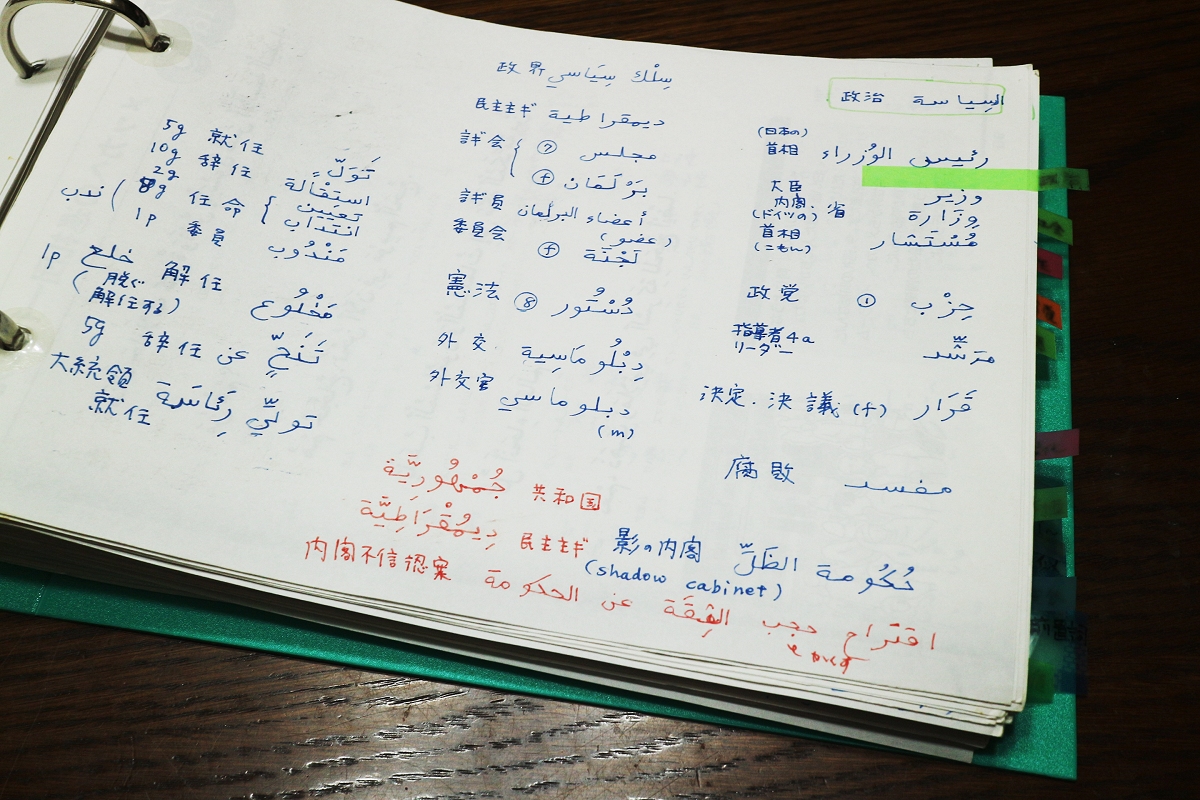 السِياسة 政治
(日本の)
首相 رئيس الوُزراء
大臣 وزير
内閣、省 وِزَارة
(ドイツの)
首相 مُسْتَشار
政党 ① حِزْب
指導者 4a مُرَشّد
リーダー
決定、決議 (f) قَرَار
腐敗 مفسد
政界 سِلْك سِيَاسي
民主主ギ ديمقراطية
ギ会 ⑦ مجلس
ⓕ بَرْلَمَان
ギ員 أعضاء البرلمان
(عضو)
委員会 ⓕ لَجْنَة
憲法 ⑧ دُسْتُور
外交 دِبْلُومَاسِية
外交官 دبلوماسي
(m)
5g 就任 تَوَلّ
10g 辞任 استقالة
2g تعيين
8g 任命 انتداب
ندب
1p 委員 مَنْدُوب
خلع 解任
1p (脱ぐ
解任する) مَخْلُوع
5g 辞任 تَنَحٍّ عن
大統領 تولّي رِئَاسَة
就任
جُمْهُورِيَّة 共和国
دِيمُقْرَاطِيَّة 民主主ギ
影の内閣 حُكُومة الظَلّ
(shadow cabinet)
内閣不信認案 اقتَراح حجب الثِقَة عن الحكومة